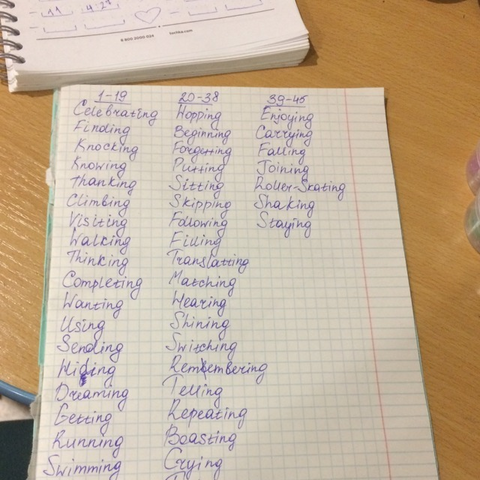 11 4 29
1-19
Celebrating
Finding
Knocking
Knowing
Thanking
Climbing
Visiting
Walking
Thinking
Completing
Wanting
Using
Sending
Hiding
Dreaming
Getting
Running
Swimming
20-38
Hopping
Beginning
Forgetting
Putting
Sitting
Skipping
Following
Filling
Translating
Matching
Hearing
Shining
Switching
Remembering
Telling
Repeating
Boasting
Crying
39-45
Enjoying
Carrying
Falling
Joining
Roller-Skating
Shaking
Staying